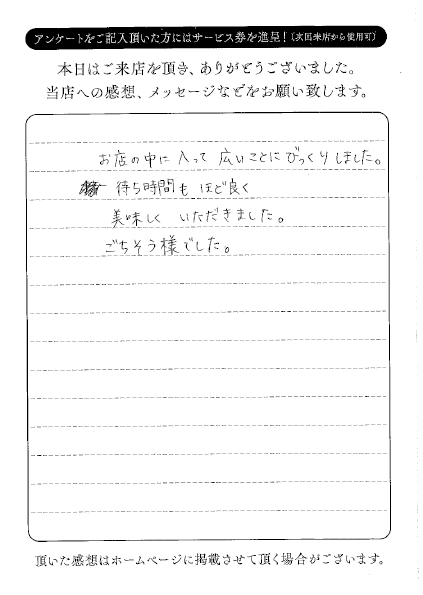 アンケートをご記入頂いた方にはサービス券を進呈!(次回来店から使用可)
本日はご来店を頂き、ありがとうございました。
当店への感想、メッセージなどをお願い致します。
お店の中に入って広いことにびっくりしました。
待ち時間もほど良く
美味しくいただきました。
ごちそう様でした。
頂いた感想はホームページに掲載させて頂く場合がございます。